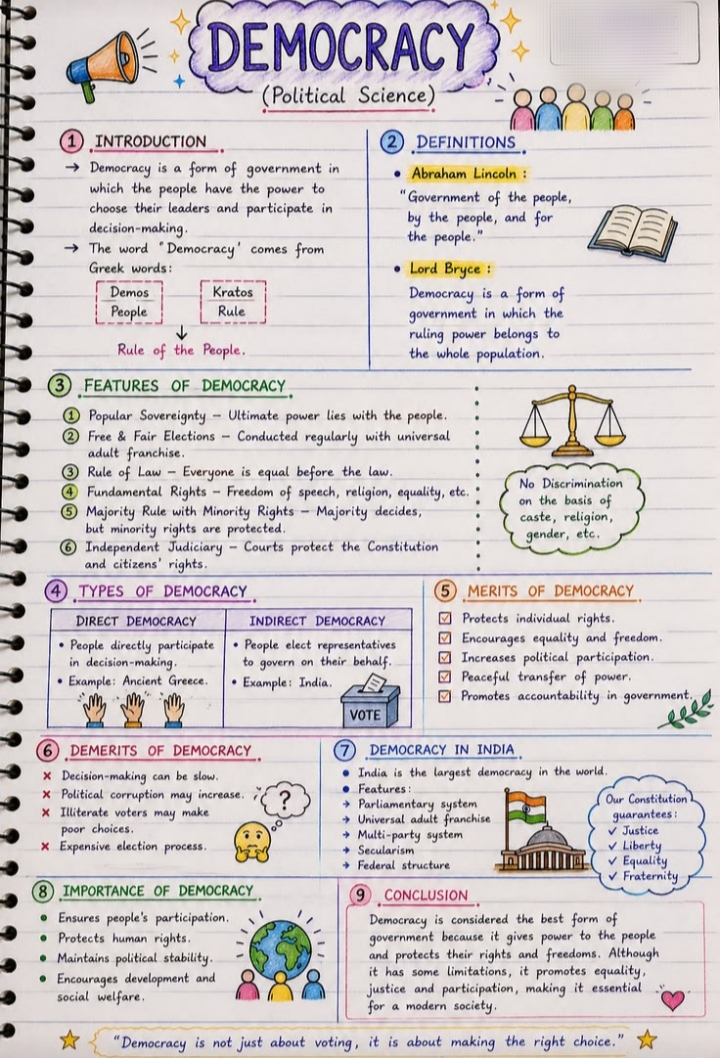 DEMOCRACY
(Political Science)
1 INTRODUCTION
→ Democracy is a form of government in
which the people have the power to
choose their leaders and participate in
decision-making.
→ The word "Democracy' comes from
Greek words:
Demos Kratos
People Rule
↓
Rule of the People.
2 DEFINITIONS
• Abraham Lincoln :
"Government of the people,
by the people, and for
the people."
• Lord Bryce :
Democracy is a form of
government in which the
ruling power belongs to
the whole population.
3 FEATURES OF DEMOCRACY
1 Popular Sovereignty – Ultimate power lies with the people.
2 Free & Fair Elections – Conducted regularly with universal
adult franchise.
3 Rule of Law – Everyone is equal before the law.
4 Fundamental Rights – Freedom of speech, religion, equality, etc.
5 Majority Rule with Minority Rights – Majority decides,
but minority rights are protected.
6 Independent Judiciary – Courts protect the Constitution
and citizens' rights.
No Discrimination
on the basis of
caste, religion,
gender, etc.
4 TYPES OF DEMOCRACY
DIRECT DEMOCRACY
• People directly participate
in decision-making.
• Example: Ancient Greece.
INDIRECT DEMOCRACY
• People elect representatives
to govern on their behalf.
• Example: India.
VOTE
5 MERITS OF DEMOCRACY
☑ Protects individual rights.
☑ Encourages equality and freedom.
☑ Increases political participation.
☑ Peaceful transfer of power.
☑ Promotes accountability in government.
6 DEMERITS OF DEMOCRACY
✗ Decision-making can be slow.
✗ Political corruption may increase.
✗ Illiterate voters may make
poor choices.
✗ Expensive election process.
?
7 DEMOCRACY IN INDIA
• India is the largest democracy in the world.
• Features:
→ Parliamentary system
→ Universal adult franchise
→ Multi-party system
→ Secularism
→ Federal structure
Our Constitution
guarantees:
✓ Justice
✓ Liberty
✓ Equality
✓ Fraternity
8 IMPORTANCE OF DEMOCRACY
• Ensures people's participation.
• Protects human rights.
• Maintains political stability.
• Encourages development and
social welfare.
9 CONCLUSION
Democracy is considered the best form of
government because it gives power to the people
and protects their rights and freedoms. Although
it has some limitations, it promotes equality,
justice and participation, making it essential
for a modern society.
"Democracy is not just about voting, it is about making the right choice."